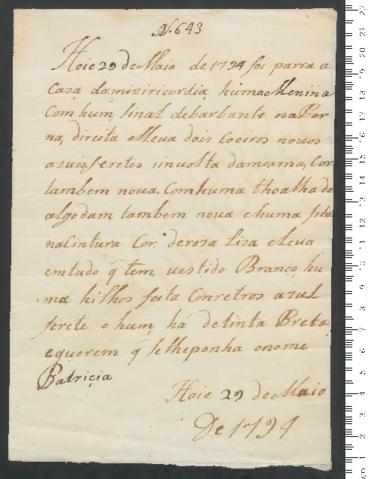 N. 643
Hoie 29 de Maio de 1794 foi parra a
Caza damiziricordia huma Menina
Com hum sinal debarbante na Per
na, direita eLleva dois Coeiros novos
azuis feretes involta damesma, Cor
tambem nova, Com huma thoalha de
algodam tambem nova e huma fita
naCintura Cor, deroza Liza eLeva
emtudo q̃ tem vestido Branco, hu
ma seilhos feita Conretros azul
ferete e hum há detinta Preta
equerem q̃ selheponha onome
Patricia
Hoie 29 de Maio
De 1794